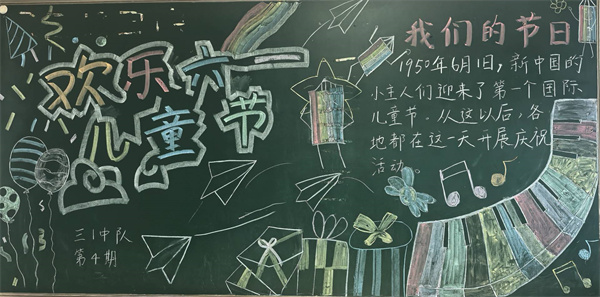 欢乐六一
儿童节
三1中队
第4期
我们的节日
1950年6月1日，新中国的
小主人们迎来了第一个国际
儿童节。从这以后，各
地都在这一天开展庆祝
活动。